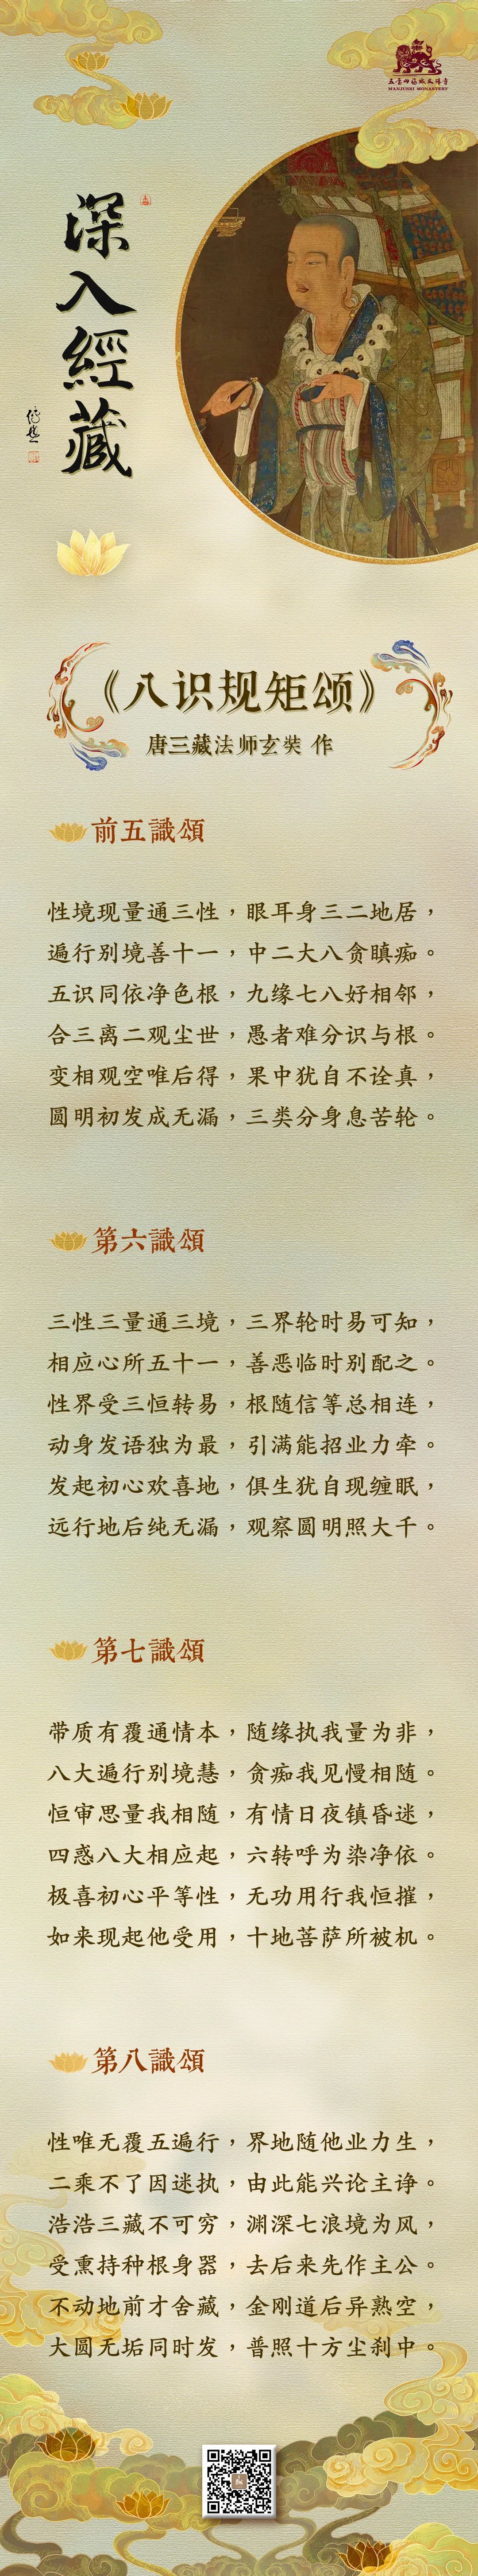 MANJUSHI MONASTERY
深入經藏
《八识规矩颂》
唐三藏法师玄奘 作
前五識頌
性境现量通三性，眼耳身三二地居，
遍行别境善十一，中二大八贪瞋痴。
五识同依净色根，九缘七八好相邻，
合三离二观尘世，愚者难分识与根。
变相观空唯后得，果中犹自不诠真，
圆明初发成无漏，三类分身息苦轮。
第六識頌
三性三量通三境，三界轮时易可知，
相应心所五十一，善恶临时别配之。
性界受三恒转易，根随信等总相连，
动身发语独为最，引满能招业力牵。
发起初心欢喜地，俱生犹自现缠眠，
远行地后纯无漏，观察圆明照大千。
第七識頌
带质有覆通情本，随缘执我量为非，
八大遍行别境慧，贪痴我见慢相随。
恒审思量我相随，有情日夜镇昏迷，
四惑八大相应起，六转呼为染净依。
极喜初心平等性，无功用行我恒摧，
如来现起他受用，十地菩萨所被机。
第八識頌
性唯无覆五遍行，界地随他业力生，
二乘不了因迷执，由此能兴论主诤。
浩浩三藏不可穷，渊深七浪境为风，
受熏持种根身器，去后来先作主公。
不动地前才舍藏，金刚道后异熟空，
大圆无垢同时发，普照十方尘刹中。